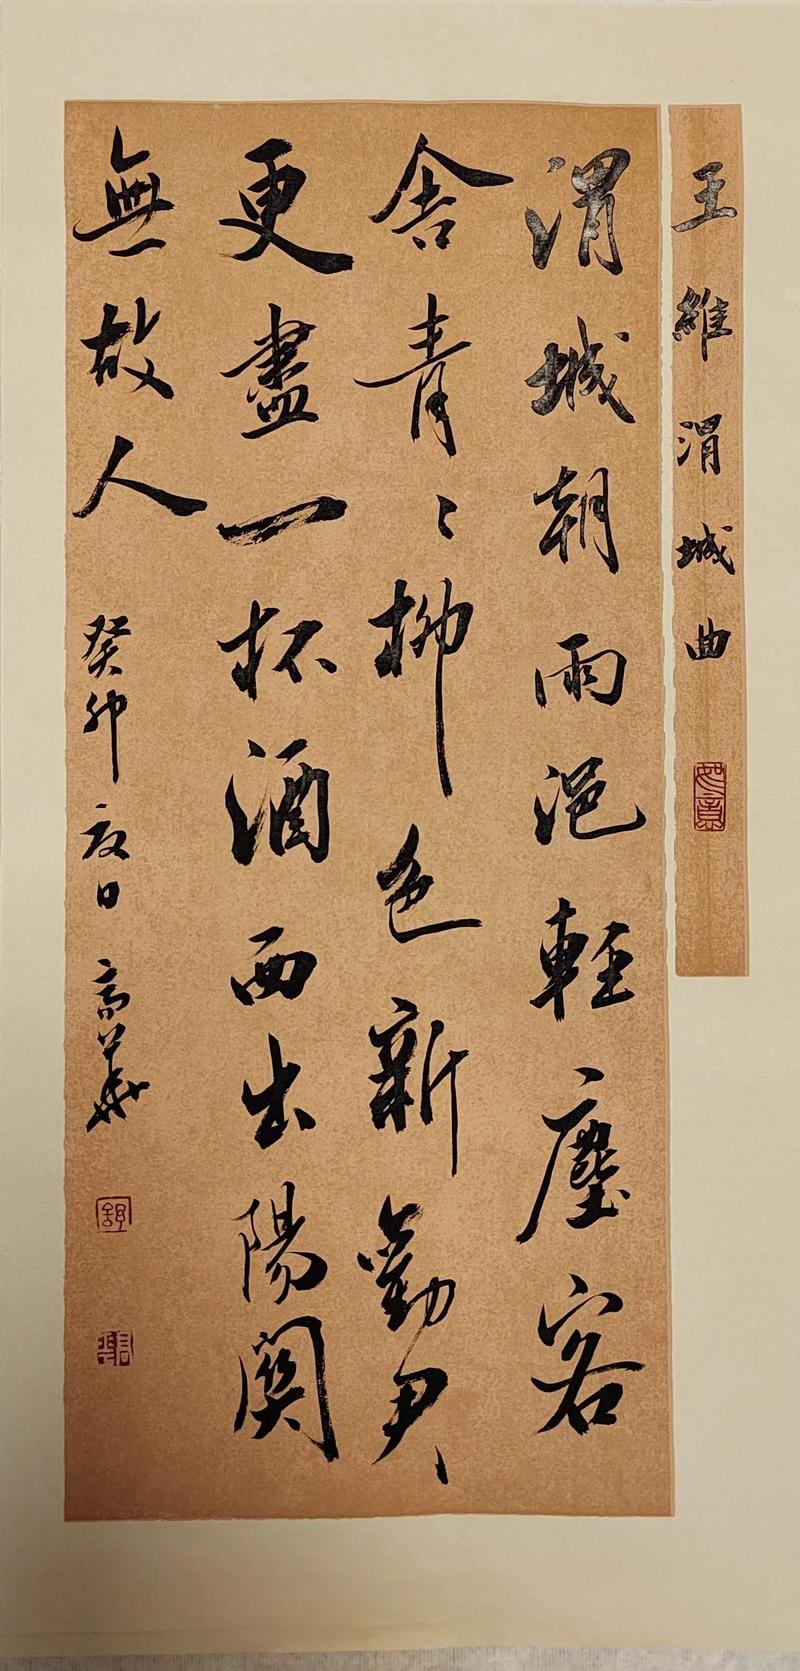 王維渭城曲
如意
渭城朝雨浥輕塵客
舍青〻柳色新勸君
更盡一杯酒西出陽關
無故人
癸卯夏日高華